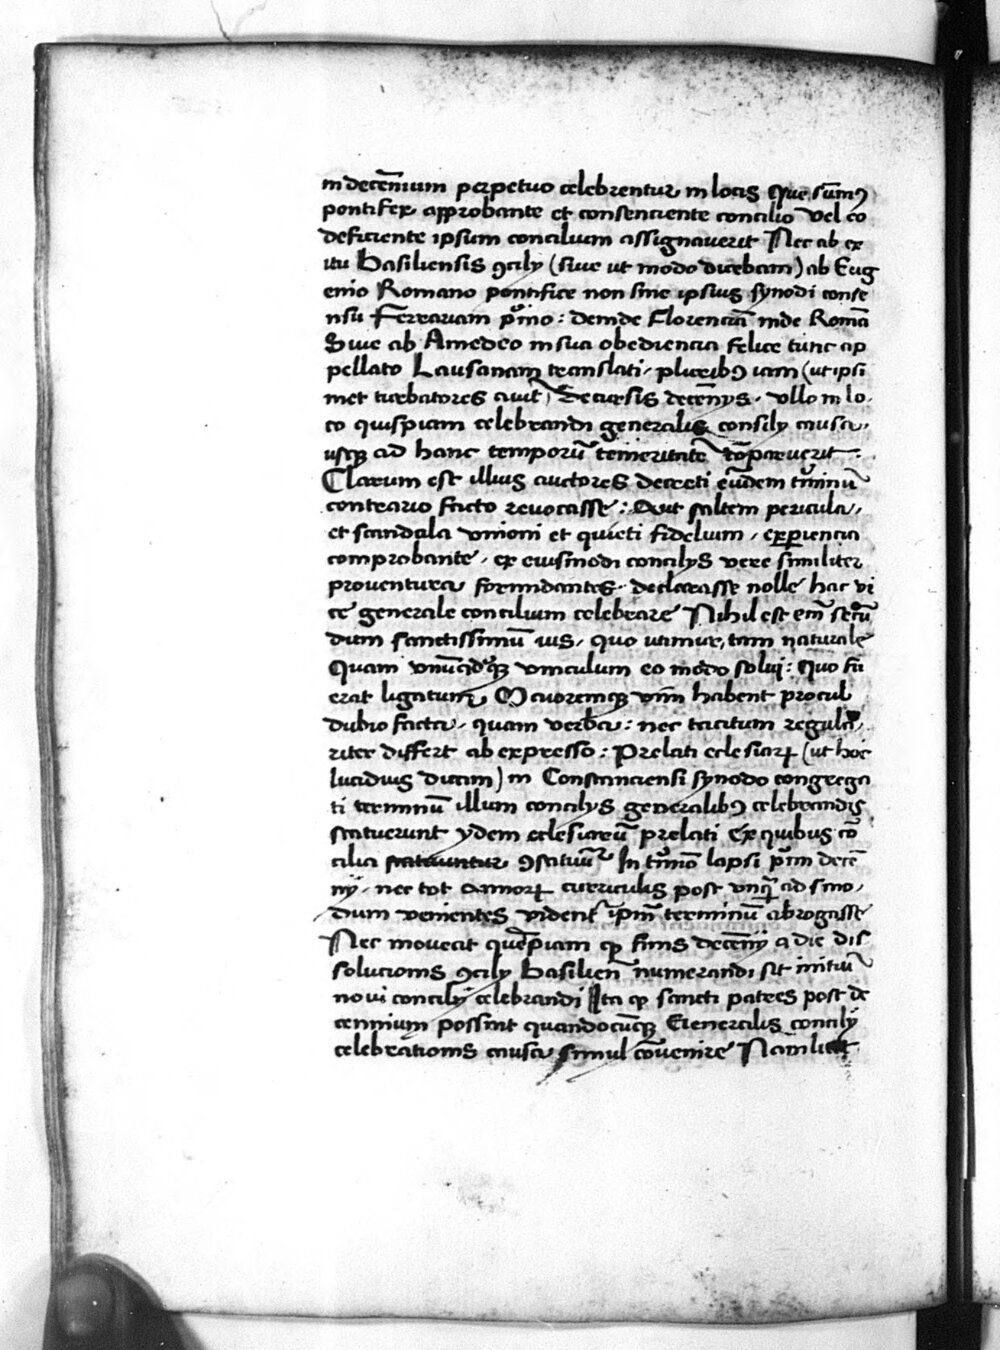 in decēnium perpetuo celebrentur in locis Que sūmꝰ
pontifex approbante et consenciente concilio vel eo
deficiente ipsum concilium assignauerit Nec ab ex
itu Basiliensis ꝯcily (siue ut modo dicebam) ab Eug
enio Romano pontifice non sine ipsius synodi conse
nsu Ferrariam pͥmo: deinde Florenciā inde Romā
Siue ab Amedeo in sua obediencia felice tunc ap
pellato Lausanam translati, pluribꝰ iam (ut ipsi
met turbatores aiūt) decursis decēnys. vllo in lo.
co quispiam celebrandi generalis consily causa,
usqꝫ ad hanc temporū temeritatē cōparuerit.
Clarum est illius auctores decreti eiūdem tͥminū
contrario facto reuocasse: Aut saltem pericula,
et scandala vnioni et quieti fidelium, exꝑiencia
comprobante, ex eiusmodi concilys vere similiter
prouentura formidantes. declarasse nolle hac vi
ce generale concilium celebrare Nihil est em̄ secū
dum sanctissimū ius, quo utimur, tam naturale
Quam vnūqdqꝫ vinculum eo modo solui: Quo fu
erat ligatum Maioremqꝫ vim̄ habent procul
dubio facta, quam verba: nec tacitum regula
riter differt ab expresso: Prelati eclesiarꝝ (ut hoc
lucidius dicam) in Constanciensi synodo congrega
ti terminū illum concilys generalibꝰ celebrandis
statuerunt ydem eclesiarū prelati Ex quibus cō
cilia statuuntur ꝯstatuūr In tͥmīo lapsi pͥmi decē
nij, nec tot Annorꝝ curriculis post vnqͣ ad sino,
dum venientes vident᷑ ip̄m terminū abrogasse
Nec moueat quēpiam ꝙ finis decēnij a die dis
solucionis ꝯcily Basilien̄ numerandi sit initiū
noui concilij celebrandi Ita ꝙ sancti patres post de
cennium possint quandocūqꝫ Generalis concily
celebrationis causa simul cōuenire Nā licet